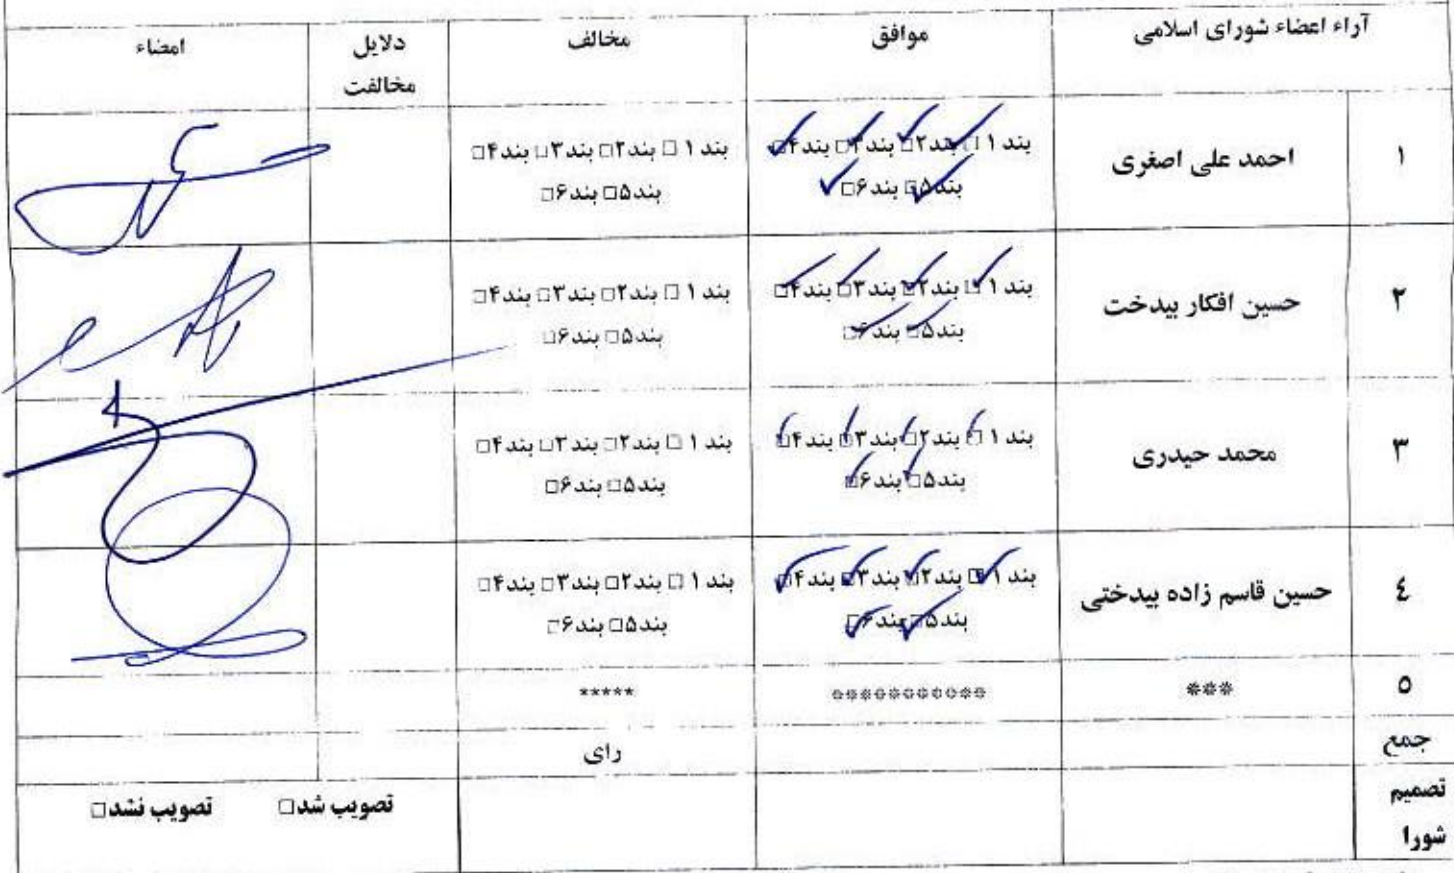 آراء اعضاء شورای اسلامی موافق مخالف دلایل مخالفت امضاء
۱ احمد علی اصغری بند ۱ □ بند۲□ بند۳□ بند۴□ بند ۱ □ بند۲□ بند۳□ بند۴□
بند۵□ بند۶□ بند۵□ بند۶□
۲ حسین افکار بیدخت بند ۱ □ بند۲□ بند۳□ بند۴□ بند ۱ □ بند۲□ بند۳□ بند۴□
بند۵□ بند۶□ بند۵□ بند۶□
۳ محمد حیدری بند ۱ □ بند۲□ بند۳□ بند۴□ بند ۱ □ بند۲□ بند۳□ بند۴□
بند۵□ بند۶□ بند۵□ بند۶□
٤ حسین قاسم زاده بیدختی بند ۱ □ بند۲□ بند۳□ بند۴□ بند ۱ □ بند۲□ بند۳□ بند۴□
بند۵□ بند۶□ بند۵□ بند۶□
۵ *** *********** *****
جمع رای
تصمیم شورا تصویب شد□ تصویب نشد□